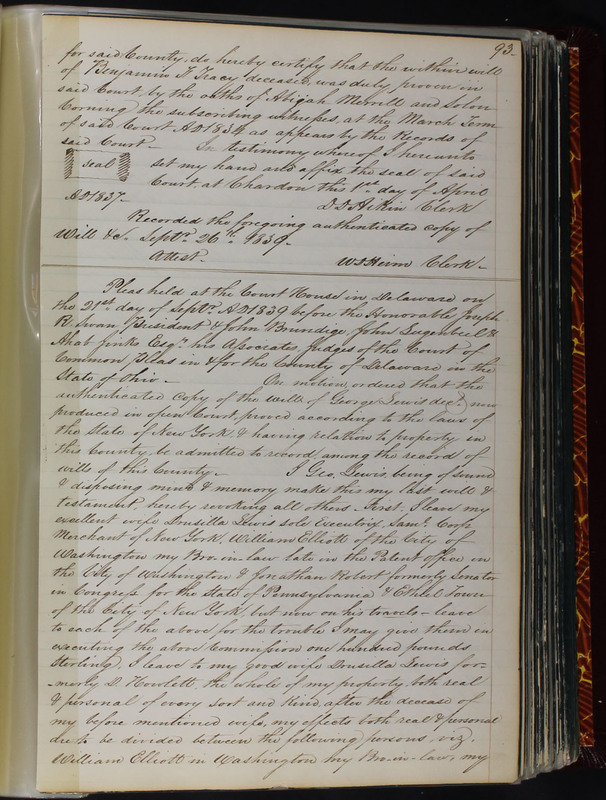 93
for said County, do hereby certify that the within will
of Benjamin F. Tracy deceased, was duly proven in
said Court, by the oaths of Abijah Merrill and Solon
Corning the subscribing witnesses, at the March Term
of said Court AD 1834 as appears by the Records of
said Court — In testimony whereof I hereunto
seal set my hand and affix the seal of said
Court, at Chardon this 1st day of April
AD 1837— D D Aikin Clerk
Recorded the foregoing authenticated copy of
Will &c. Septr. 26th 1839—
Attest— W S Heim Clerk—
Pleas held at the Court House in Delaware on
the 21st day of Septr. AD 1839 before the Honorable Joseph
R. Swan President & John Brundige, John Lugenbeel &
Ahab Jinks Esqrs. his Associates, Judges of the Court of
Common Pleas in & for the County of Delaware in the
State of Ohio — On motion, ordered that the
authenticated Copy of the will of George Lewis decd. now
produced in open Court, proved according to the laws of
the State of New York, & having relation to property in
this County, be admitted to record, among the record of
wills of this County— I Geo. Lewis being of sound
& disposing mind & memory make this my last will &
testament, hereby revoking all others. First, I leave my
excellent wife Drusilla Lewis sole Executrix, Saml. Corp
Merchant of New York, William Elliott of the City of
Washington my Bro-in-law late in the Patent office in
the City of Washington & Jonathan Robert formerly Senator
in Congress for the State of Pennsylvania & Ethiel Town
of the City of New York, but now on his travels— leave
to each of the above for the trouble I may give them in
executing the above Commission one hundred pounds
Sterling. I leave to my good wife Drusilla Lewis for-
merly D. Howlett, the whole of my property both real
& personal of every sort and kind, after the decease of
my before mentioned wife, my effects both real & personal
are to be divided between the following persons viz.
William Elliott in Washington my Bro-in-law, my